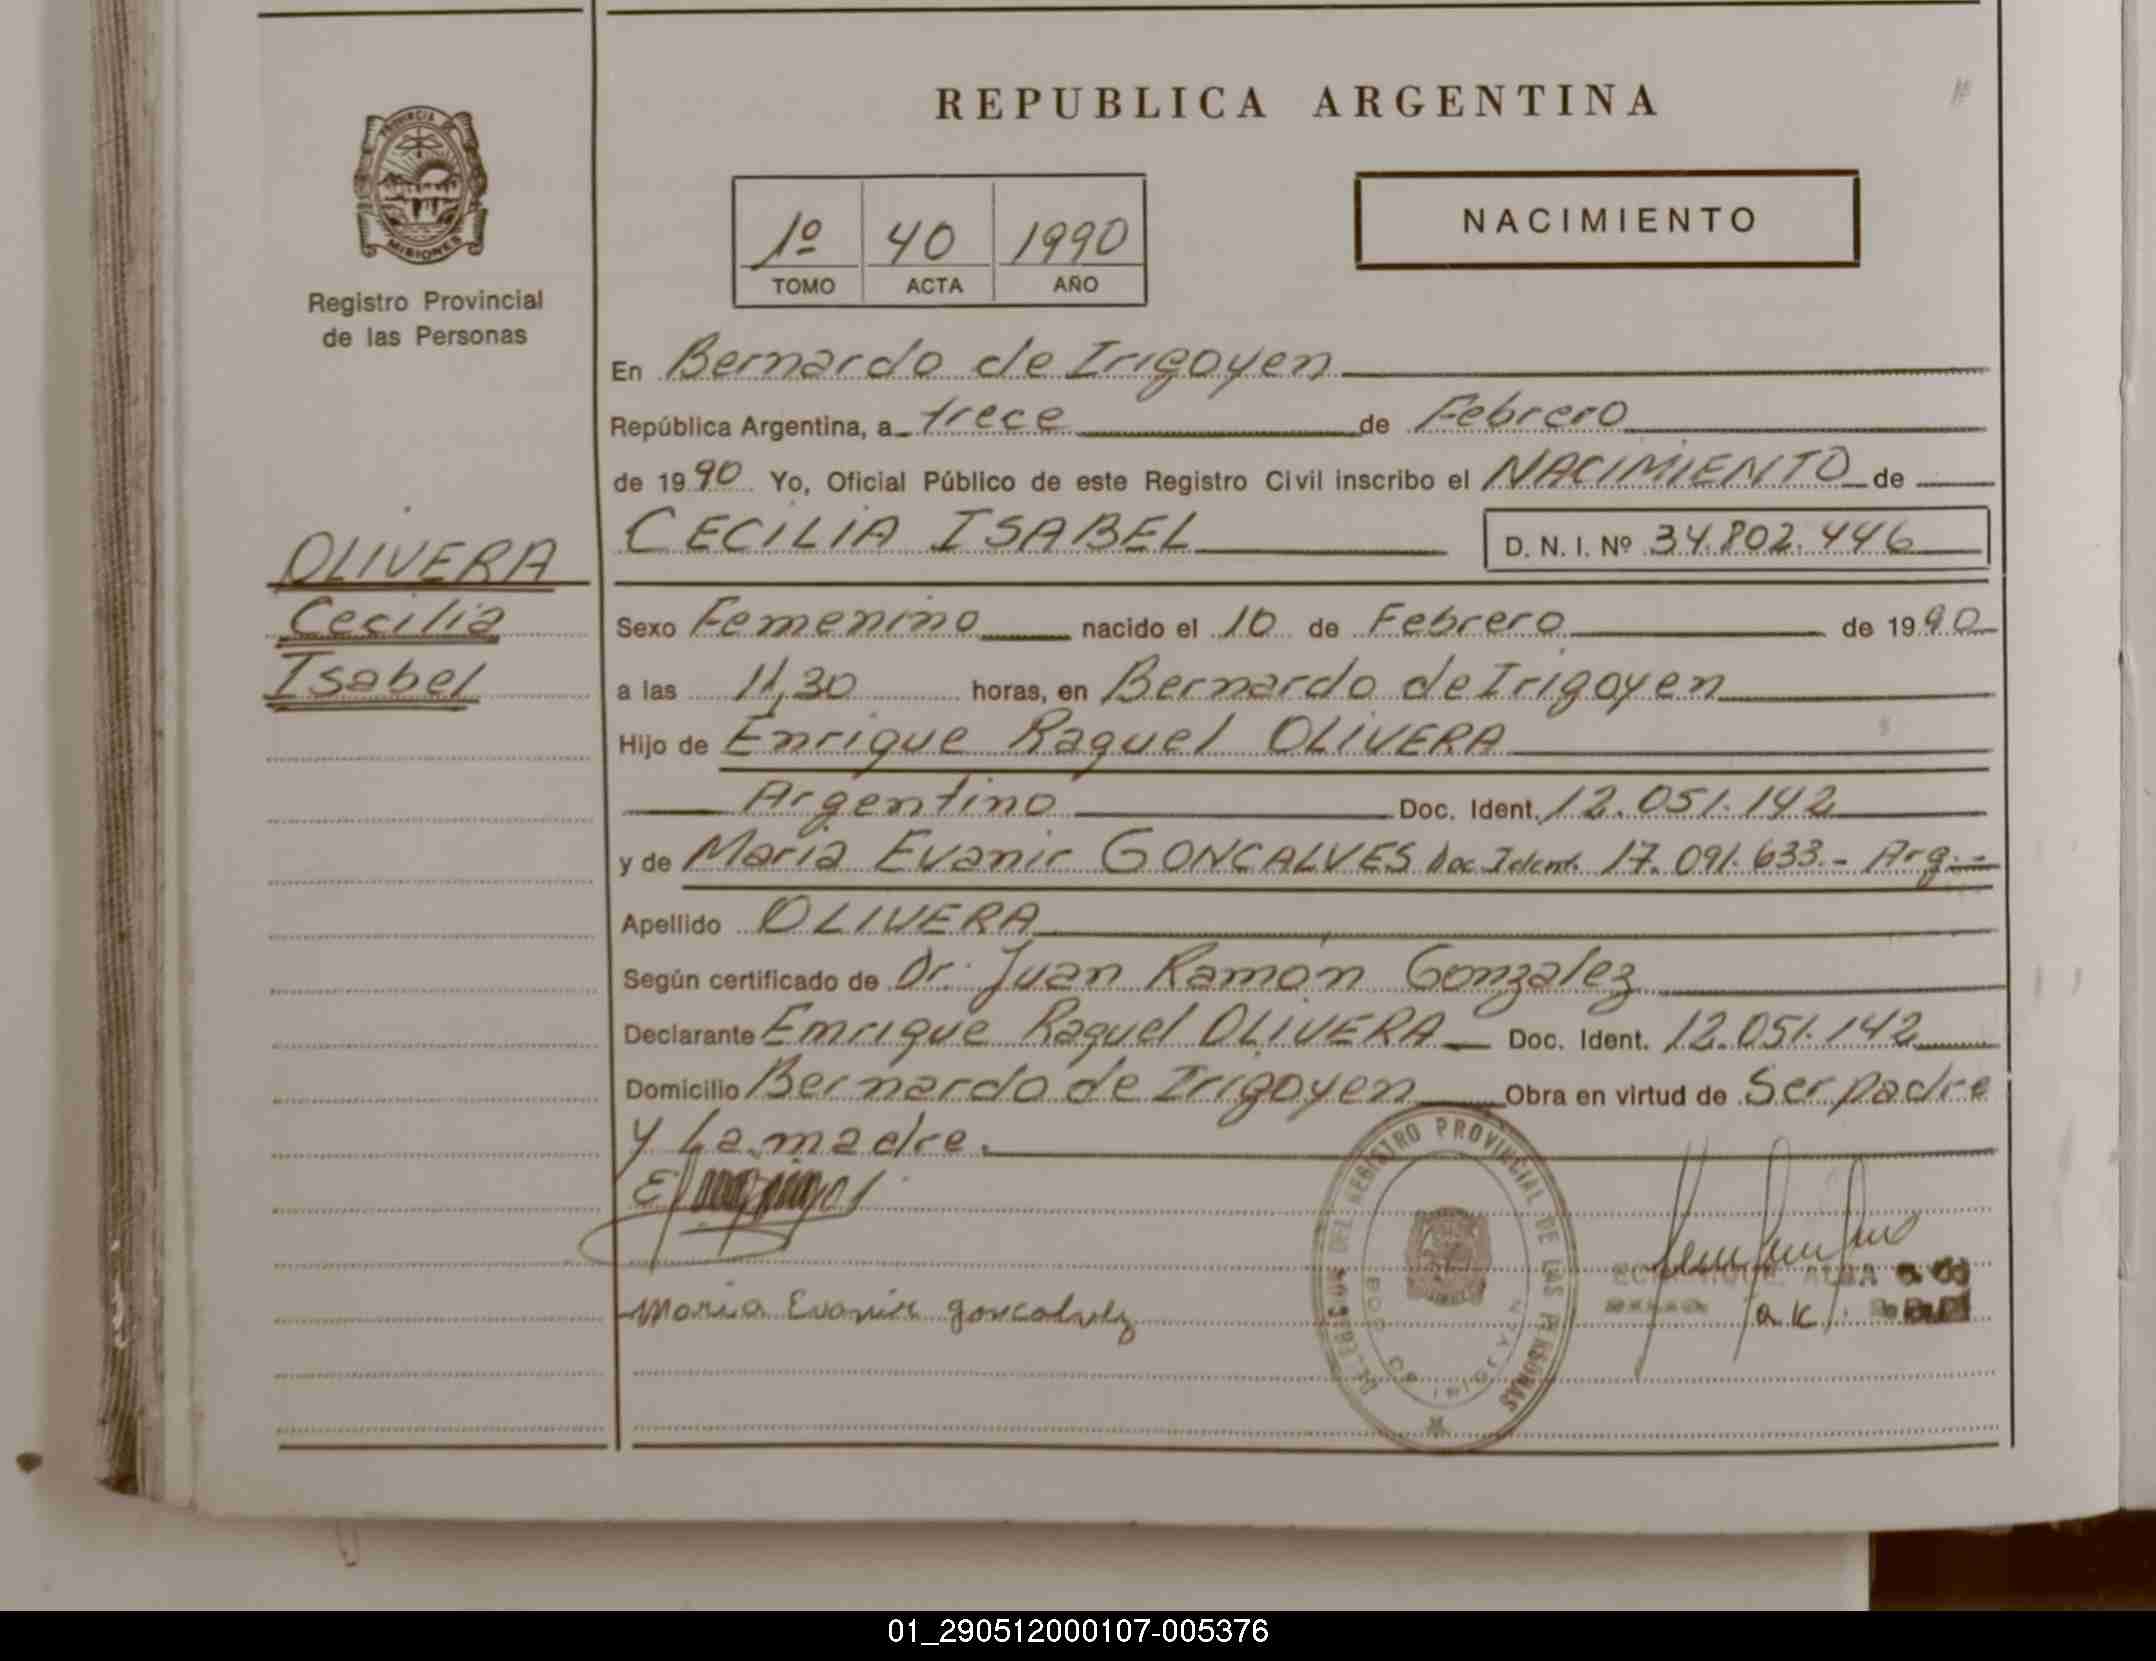 REPUBLICA ARGENTINA
PROVINCIA DE
MISIONES
Registro Provincial
de las Personas
1º 40 1990
TOMO ACTA AÑO
NACIMIENTO
En Bernardo de Irigoyen
República Argentina, a trece de Febrero
de 1990 Yo, Oficial Público de este Registro Civil inscribo el NACIMIENTO de
OLIVERA
Cecilia
Isabel
CECILIA ISABEL D. N. I. Nº 34.802.446
Sexo Femenino nacido el 10 de Febrero de 1990
a las 11,30 horas, en Bernardo de Irigoyen
Hijo de Enrique Raquel OLIVERA
Argentino Doc. Ident. 12.051.142
y de Maria Evanir GONCALVES Doc. Ident. 17.091.633.- Arg.-
Apellido OLIVERA
Según certificado de Dr. Juan Ramón Gonzalez
Declarante Enrique Raquel OLIVERA Doc. Ident. 12.051.142
Domicilio Bernardo de Irigoyen Obra en virtud de Ser padre
y La madre.
Maria Evanir goncalvez
DEL REGISTRO PROVINCIAL DE LAS PERSONAS
BDO DE IRIGOYEN
01_290512000107-005376